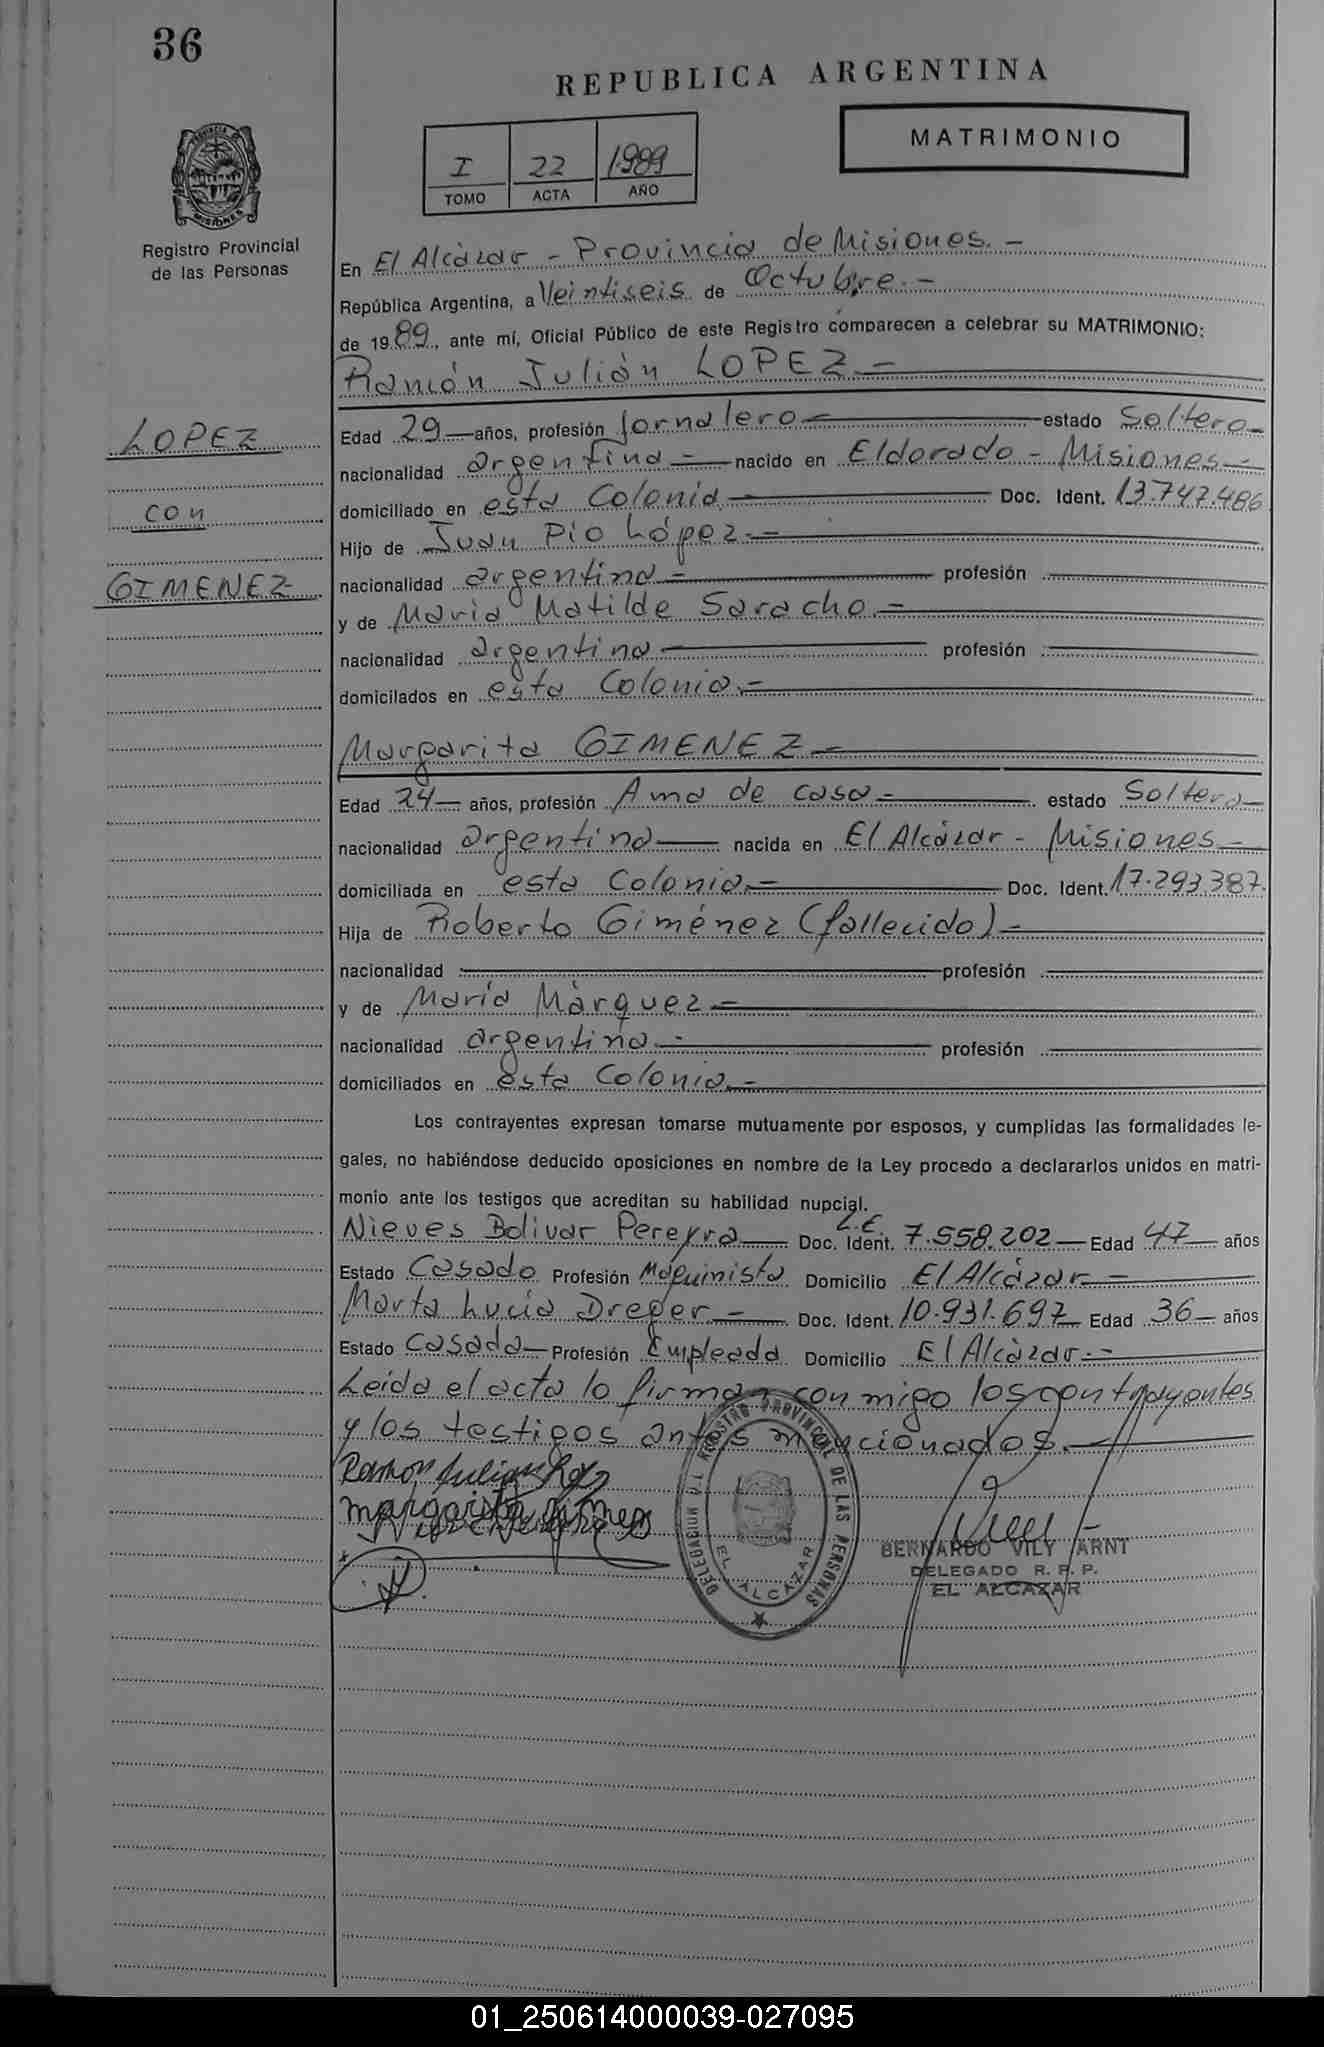 36
REPUBLICA ARGENTINA
MATRIMONIO
I 22 1989
TOMO ACTA AÑO
PROVINCIA DE MISIONES
Registro Provincial
de las Personas
En El Alcázar - Provincia de Misiones. -
República Argentina, a Veintiseis de Octubre. -
de 1989, ante mí, Oficial Público de este Registro comparecen a celebrar su MATRIMONIO:
Ramón Julián LOPEZ. -
LOPEZ
con
GIMENEZ
Edad 29 años, profesión Jornalero estado Soltero
nacionalidad argentina - nacido en Eldorado - Misiones -
domiciliado en esta Colonia. Doc. Ident. 13.747.486
Hijo de Juan Pío López. -
nacionalidad argentina - profesión
y de María Matilde Saracho. -
nacionalidad argentina profesión
domicilados en esta Colonia. -
Margarita GIMENEZ -
Edad 24 años, profesión Ama de casa - estado Soltera
nacionalidad argentina nacida en El Alcázar - Misiones
domiciliada en esta Colonia. - Doc. Ident. 17.293.387.
Hija de Roberto Giménez (fallecido) -
nacionalidad profesión
y de María Márquez -
nacionalidad argentina. - profesión
domiciliados en esta Colonia. -
Los contrayentes expresan tomarse mutuamente por esposos, y cumplidas las formalidades le-
gales, no habiéndose deducido oposiciones en nombre de la Ley procedo a declararlos unidos en matri-
monio ante los testigos que acreditan su habilidad nupcial.
Nieves Bolivar Pereyra L.E. Doc. Ident. 7.558.202 Edad 47 años
Estado Casado Profesión Maquinista Domicilio El Alcázar -
Marta Lucía Dreger - Doc. Ident. 10.931.697 Edad 36 años
Estado Casada Profesión Empleada Domicilio El Alcázar. -
Leida el acta lo firman con migo los contrayentes
y los testigos antes mencionados. -
Ramon Julian
margarita
DELEGACION REGISTRO PROVINCIAL DE LAS PERSONAS
EL ALCAZAR
BERNARDO VILY ARNT
DELEGADO R. P. P.
EL ALCAZAR
01_250614000039-027095